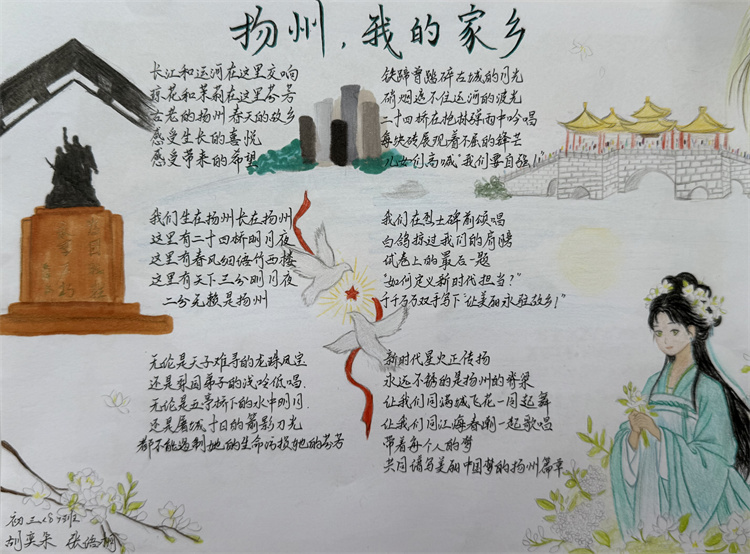 扬州,我的家乡
长江和运河在这里交响
琼花和茉莉在这里芬芳
古老的扬州 春天的故乡
感受生长的喜悦
感受带来的希望
铁蹄曾踏碎古城的月光
硝烟遮不住运河的波光
二十四桥在枪林弹雨中吟唱
每块砖展现着不屈的锋芒
儿女们高喊“我们要自强!”
我们生在扬州长在扬州
这里有二十四桥明月夜
这里有春风细绕竹西楼
这里有天下三分明月夜
二分无赖是扬州
我们在烈士碑前颂唱
白鸽掠过我们的肩膀
试卷上的最后一题
“如何定义新时代担当?”
千千万万双手写下“让美丽永驻故乡!”
无论是天子难寻的龙珠凤宝
还是梨园弟子的浅吟低唱.
无论是五亭桥下的水中明月.
还是屠城十日的箭影刀光
都不能遏制她的生命 她的芬芳
新时代星火正传扬
永远不锈的是扬州的脊梁
让我们同满城飞花一同起舞
让我们同江海春潮一起歌唱
带着每个人的梦
共同谱写美丽中国梦的扬州篇章
初三(8)班
胡奕朵 张